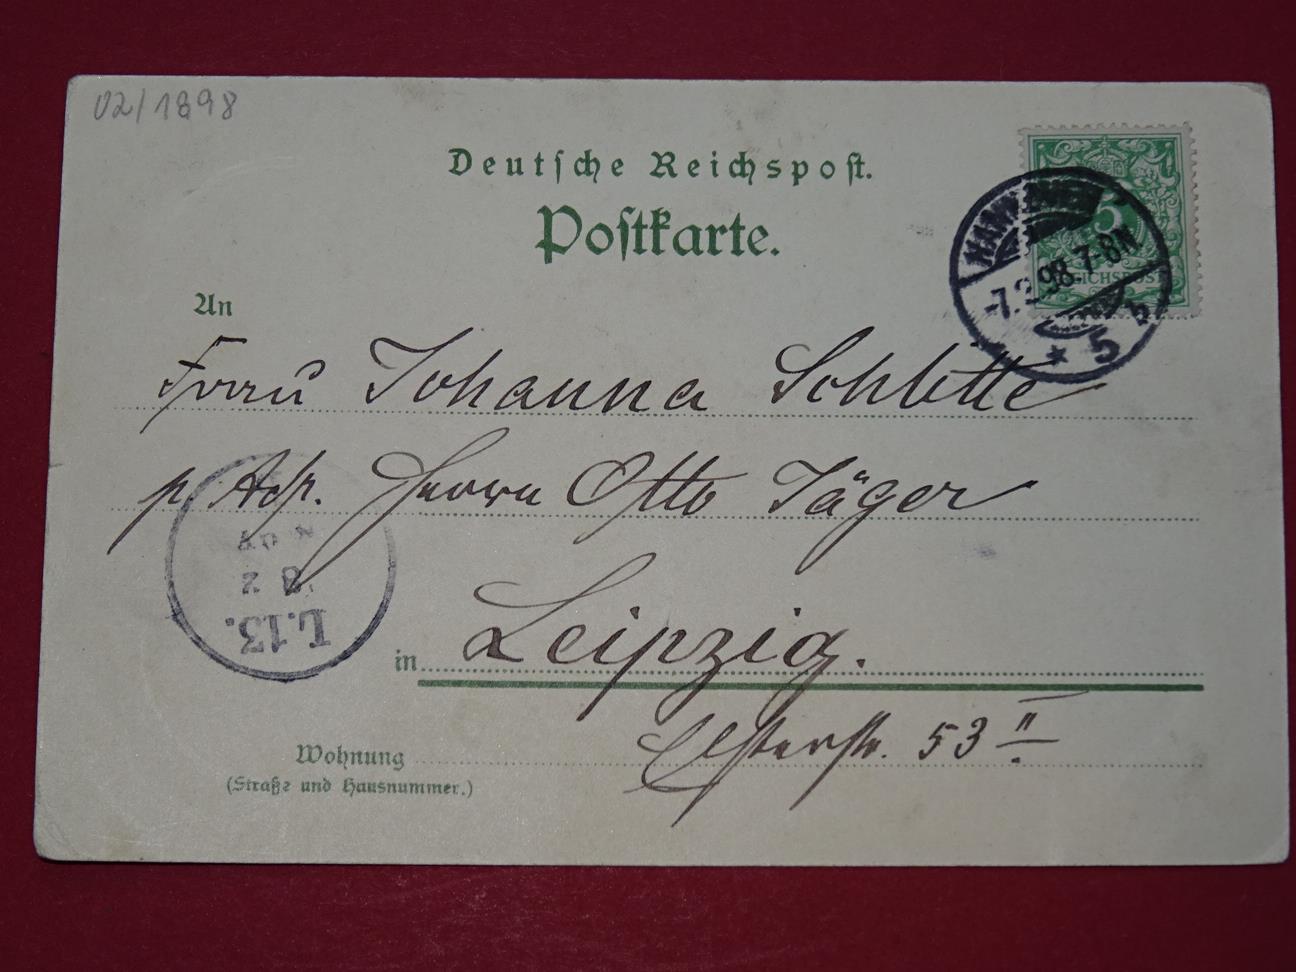 02/1898
Deutsche Reichspost.
Postkarte.
An
HANNOVER
-7.2.98.7-8N
* 5 b
5
REICHSPOST
Frau Johanna Schlitte
p. Adr. Herrn Otto Jäger
8 2
L.13.
in Leipzig.
Elsterstr. 53 II
Wohnung
(Straße und Hausnummer.)